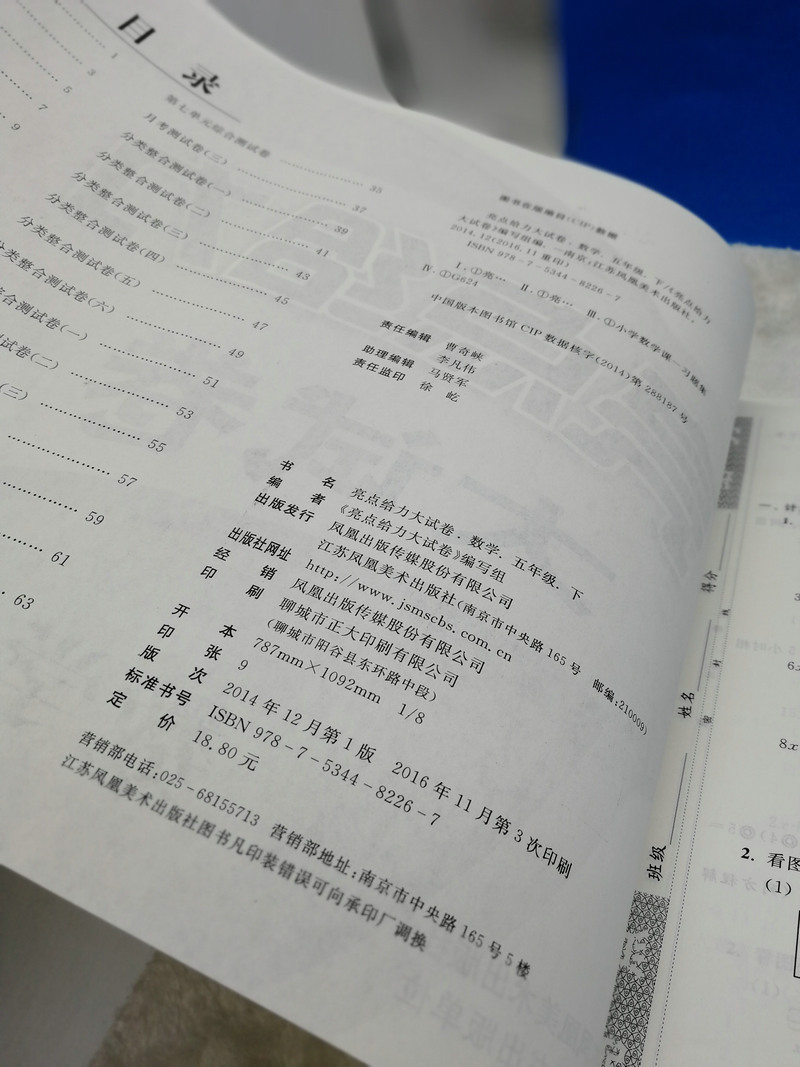 目 录
1
3
5
7
9
第七单元综合测试卷 35
月考测试卷(三) 37
分类整合测试卷(一) 39
分类整合测试卷(二) 41
分类整合测试卷(三) 43
分类整合测试卷(四) 45
分类整合测试卷(五) 47
分类整合测试卷(六) 49
综合测试卷(一) 51
测试卷(二) 53
(三) 55
57
59
61
63
图书在版编目(CIP)数据
亮点给力大试卷.数学.五年级.下/《亮点给力
大试卷》编写组编.—南京:江苏凤凰美术出版社,
2014.12(2016.11重印)
ISBN 978-7-5344-8226-7
Ⅰ.①亮… Ⅱ.①亮… Ⅲ.①小学数学课—习题集
Ⅳ.①G624
中国版本图书馆CIP数据核字(2014)第288187号
责任编辑 曹奇峡
李凡伟
助理编辑 马贤军
责任监印 徐 屹
书 名 亮点给力大试卷.数学.五年级.下
编 者 《亮点给力大试卷》编写组
出版发行 凤凰出版传媒股份有限公司
江苏凤凰美术出版社(南京市中央路165号 邮编:210009)
出版社网址 http://www.jsmscbs.com.cn
经 销 凤凰出版传媒股份有限公司
印 刷 聊城市正大印刷有限公司
(聊城市阳谷县东环路中段)
开 本 787mm×1092mm 1/8
印 张 9
版 次 2014年12月第1版 2016年11月第3次印刷
标准书号 ISBN 978-7-5344-8226-7
定 价 18.80元
营销部电话:025-68155713 营销部地址:南京市中央路165号5楼
江苏凤凰美术出版社图书凡印装错误可向承印厂调换
得分
姓名
班级
线
封
密
一、计
1.
3
6.
8.x
2. 看图
(1)